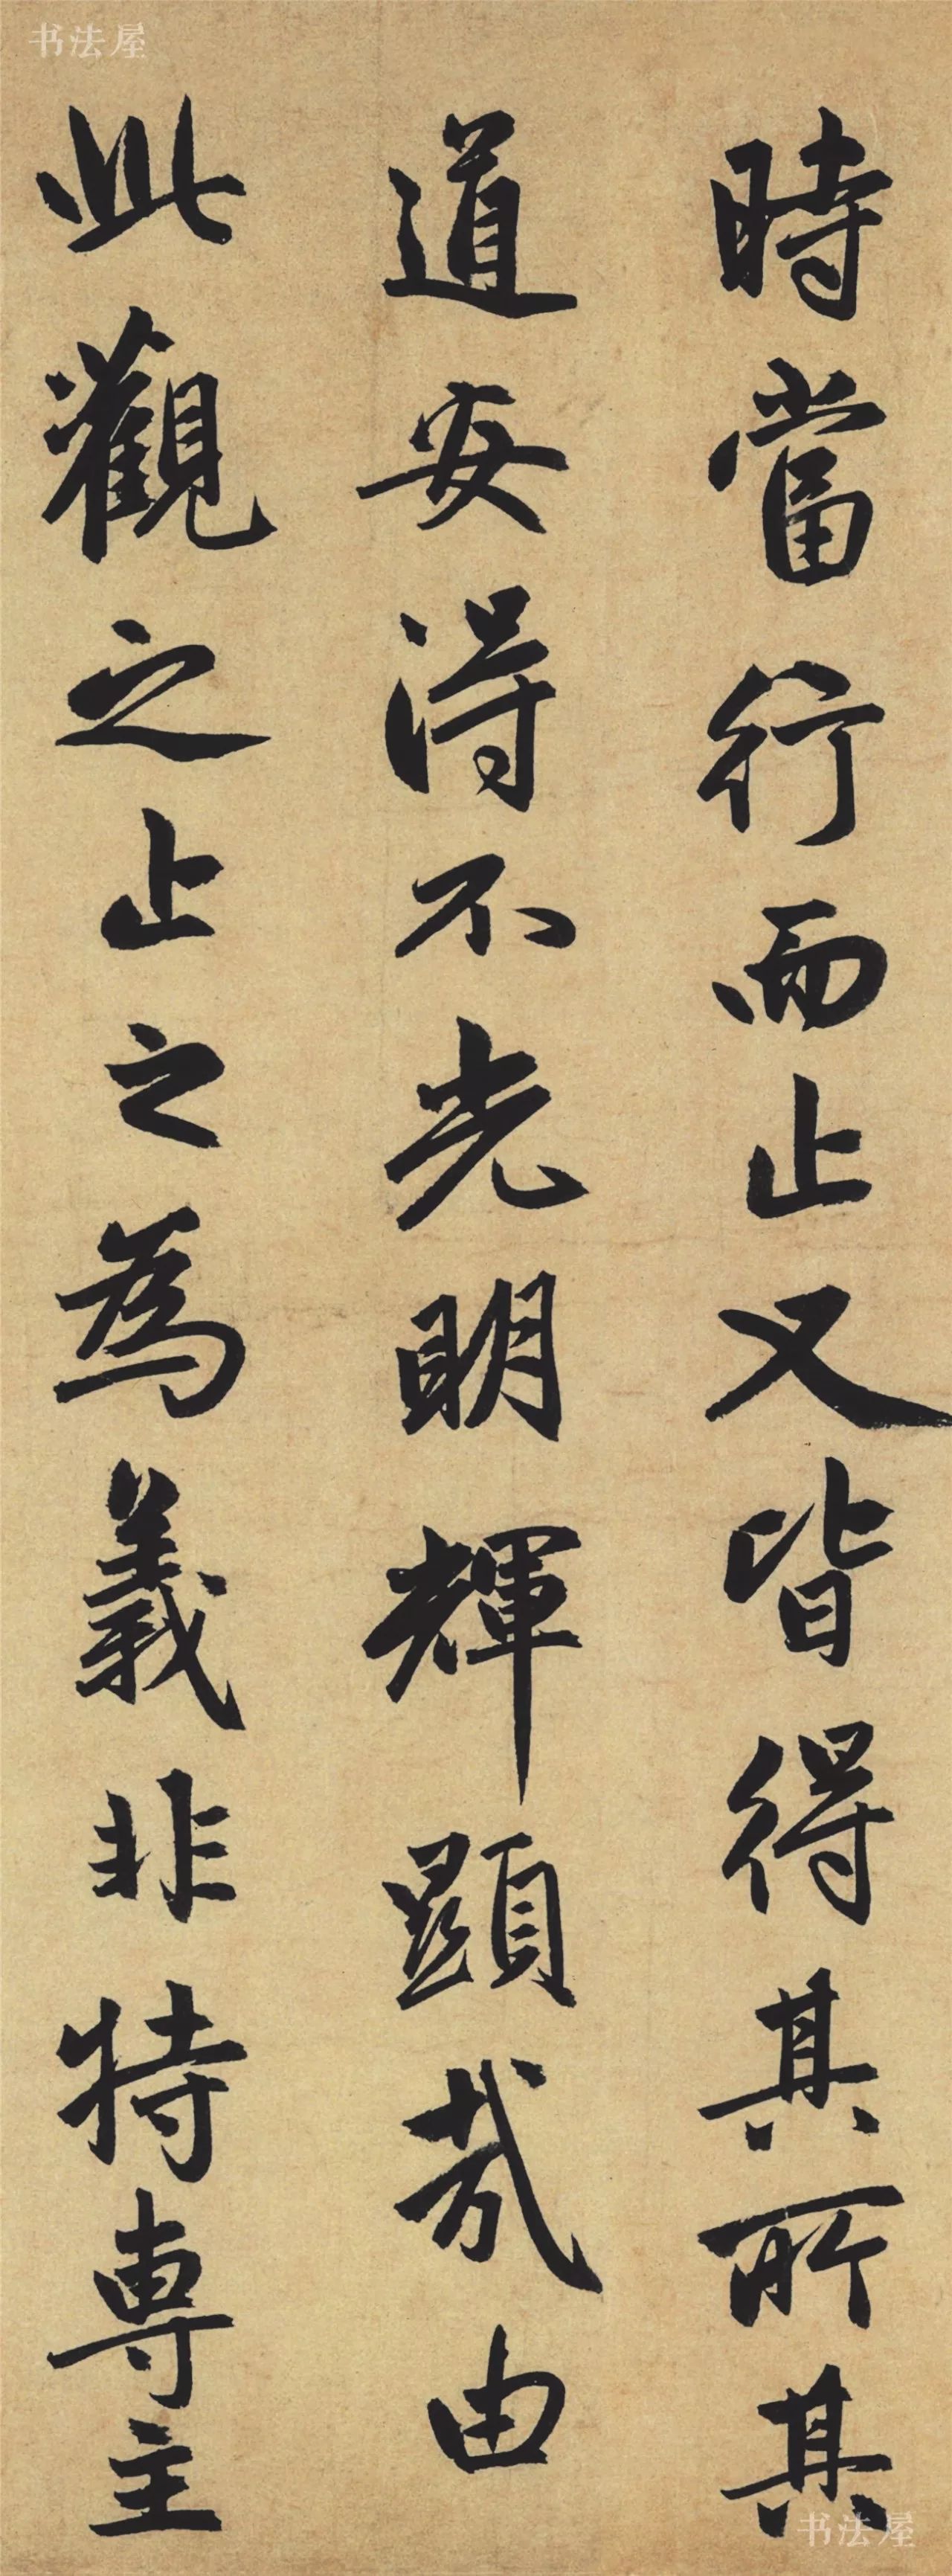 時當行而止又皆得其所其
道安得不光明輝顯哉由
此觀之止之為義非特專主
书法屋
书法屋